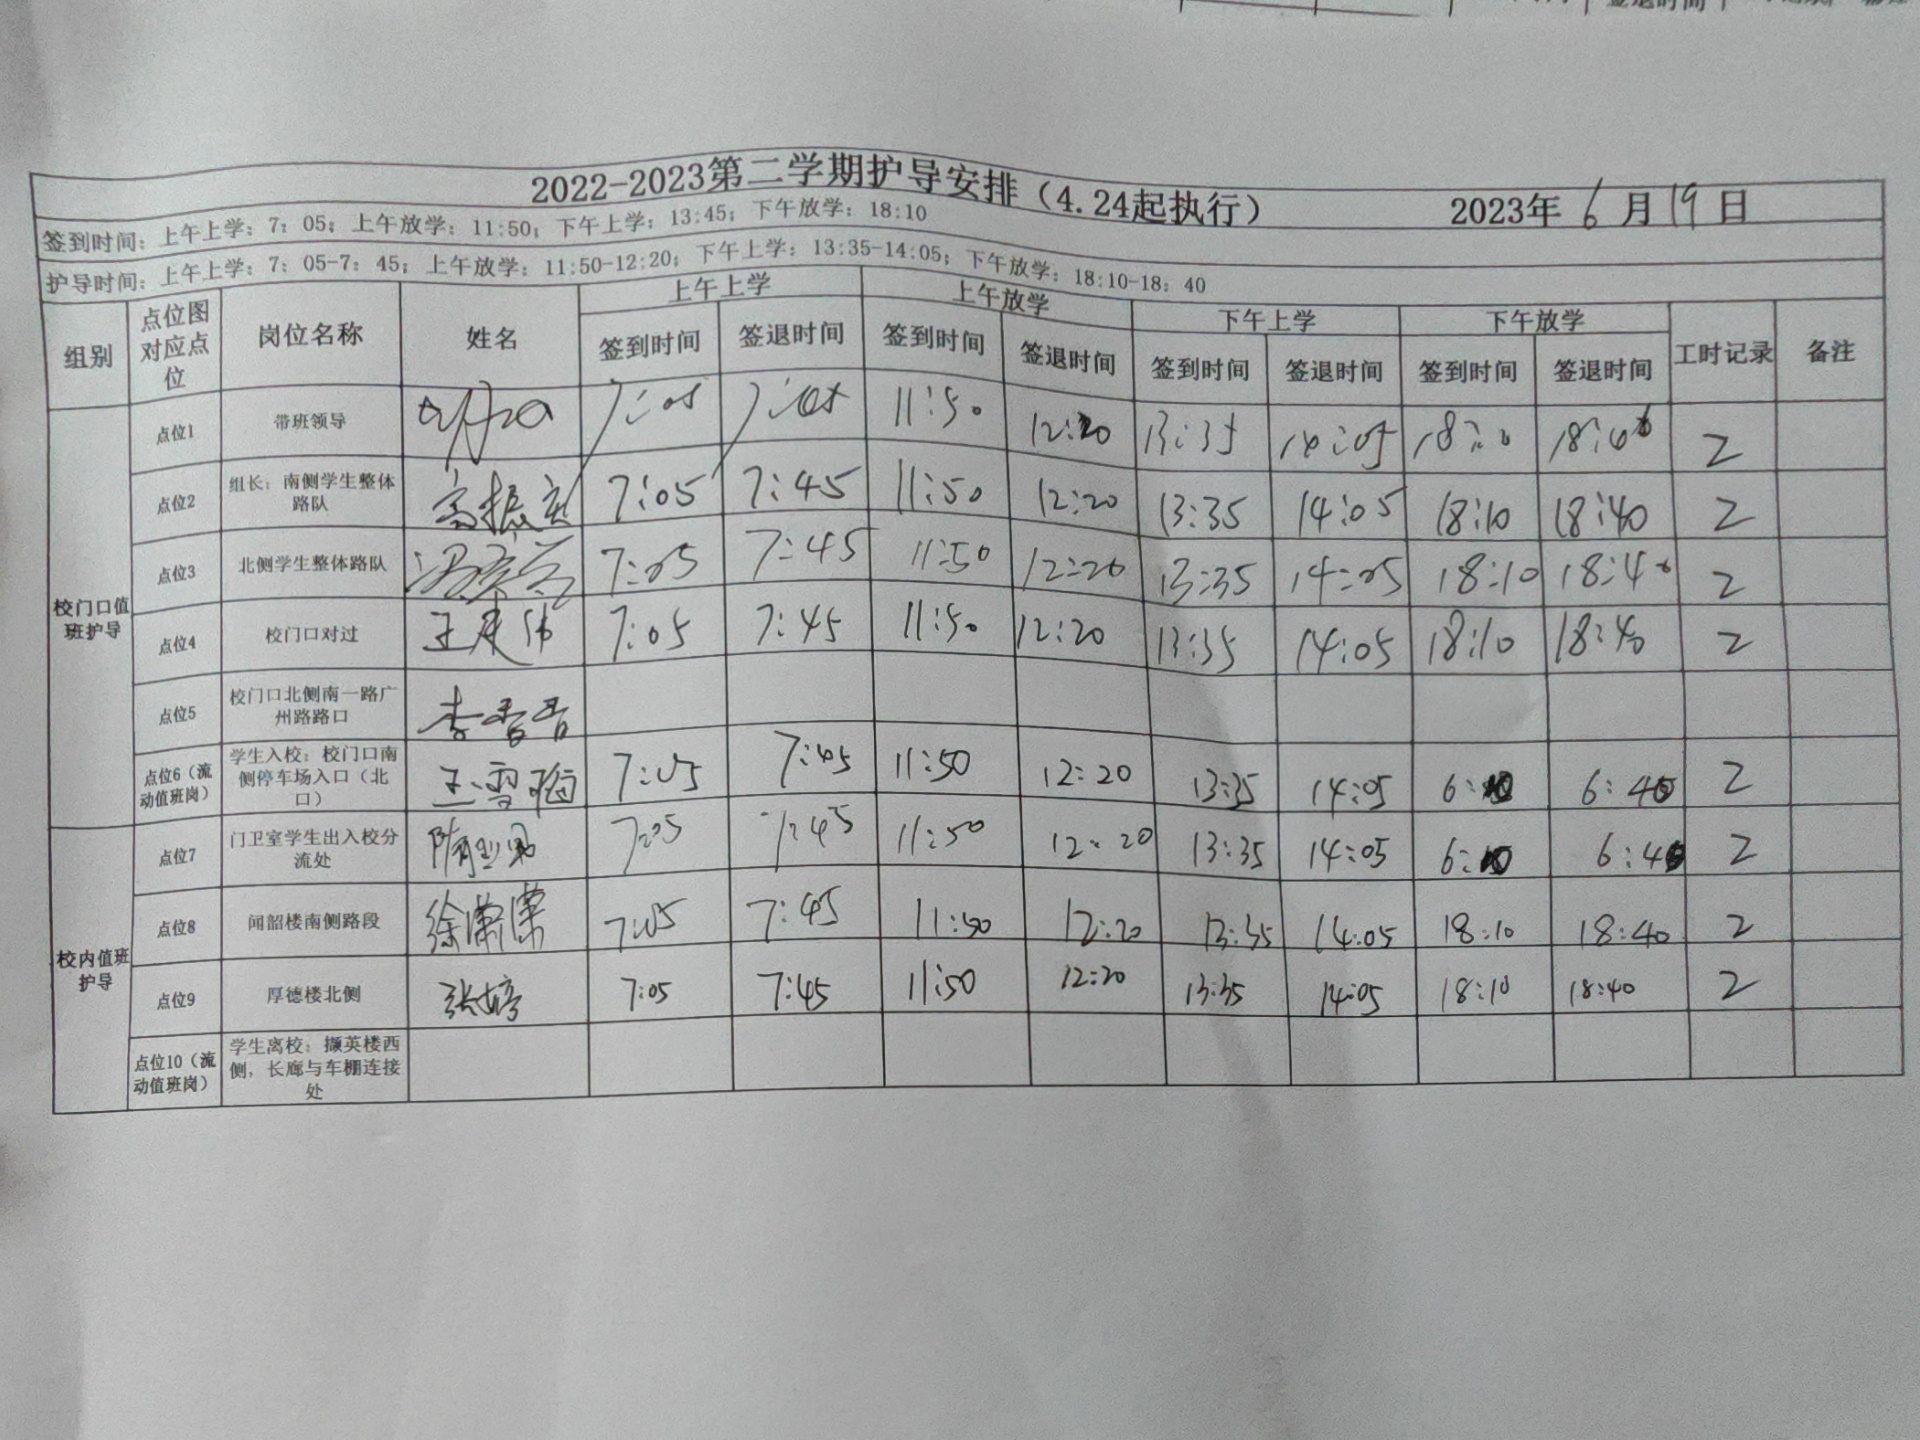 签退时间
2022-2023第二学期护导安排（4.24起执行） 2023年 6 月 19 日
签到时间：上午上学：7：05；上午放学：11:50；下午上学：13:45；下午放学：18:10
护导时间：上午上学：7：05-7：45；上午放学：11:50-12:20；下午上学：13:35-14:05；下午放学：18:10-18：40
组别 点位图对应点位 岗位名称 姓名 上午上学 上午放学 下午上学 下午放学 工时记录 备注
签到时间 签退时间 签到时间 签退时间 签到时间 签退时间 签到时间 签退时间
校门口值班护导
点位1 带班领导 7:05 11:50 12:20 13:35 14:05 2
点位2 组长：南侧学生整体路队 7:05 7:45 11:50 12:20 13:35 14:05 18:10 18:40 2
点位3 北侧学生整体路队 7:05 7:45 11:50 12:20 13:35 14:05 18:10 18:40 2
点位4 校门口对过 7:05 7:45 11:50 12:20 13:35 14:05 18:10 18:40 2
点位5 校门口北侧南一路广州路路口
点位6（流动值班岗） 学生入校：校门口南侧停车场入口（北口） 7:05 7:45 11:50 12:20 13:35 14:05 6:10 6:40 2
校内值班护导
点位7 门卫室学生出入校分流处 7:05 7:45 11:50 12:20 13:35 14:05 6:10 6:40 2
点位8 闻韶楼南侧路段 徐潇潇 7:05 7:45 11:50 12:20 13:35 14:05 18:10 18:40 2
点位9 厚德楼北侧 张婷 7:05 7:45 11:50 12:20 13:35 14:05 18:10 18:40 2
点位10（流动值班岗） 学生离校：撷英楼西侧，长廊与车棚连接处